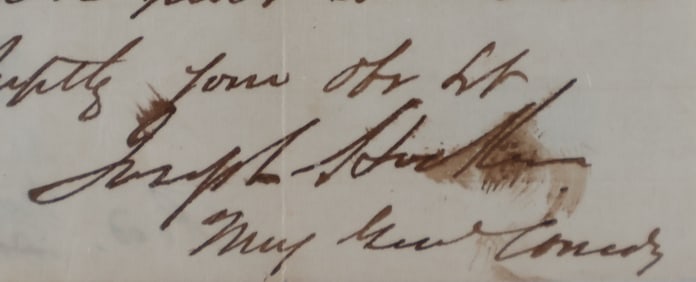 your obt Svt
Joseph Hooker
Maj Genl Comdg